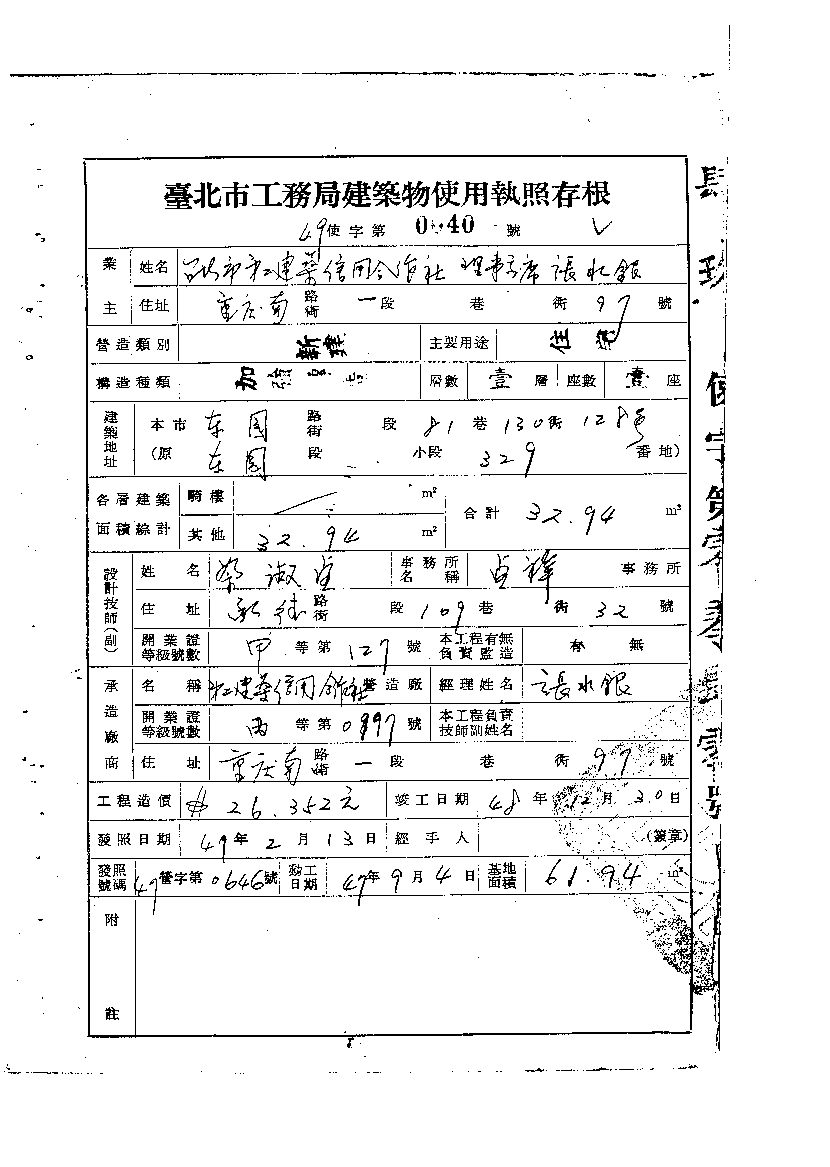 臺北市工務局建築物使用執照存根
49使字第0040號
業主 姓名 台北市第二建築信用合作社 理事主席 張水銀
住址 重庆南路街 一段 巷 街 97 號
營造類別 新建 主要用途 住宅
構造種類 加強 層數 壹層 座數 壹座
建築地址 本市 东園 路街 段 81巷 130街 128号
(原 东園 段 小段 329 番地)
各層建築面積綜計 騎樓 m² 合計 32.94 m²
其他 32.94 m²
設計技師(副) 姓名 蔡淑貞 事務所名稱 貞祥 事務所
住址 承德路街 段 109巷 街 32 號
開業證等級號數 甲等第 127 號 本工程有無負責監造 有 無
承造廠商 名稱 建築信用合作社營造廠 經理姓名 張水銀
開業證等級號數 丙等第0997號 本工程負責技師副姓名
住址 重庆南路街 一段 巷 街 97 號
工程造價 26.352元 竣工日期 48年12月30日
發照日期 49年2月13日 經手人 (簽章)
發照號碼 47營字第0646號 動工日期 47年9月4日 基地面積 61.94 m²
附註
肆玖 使字第零零肆零號